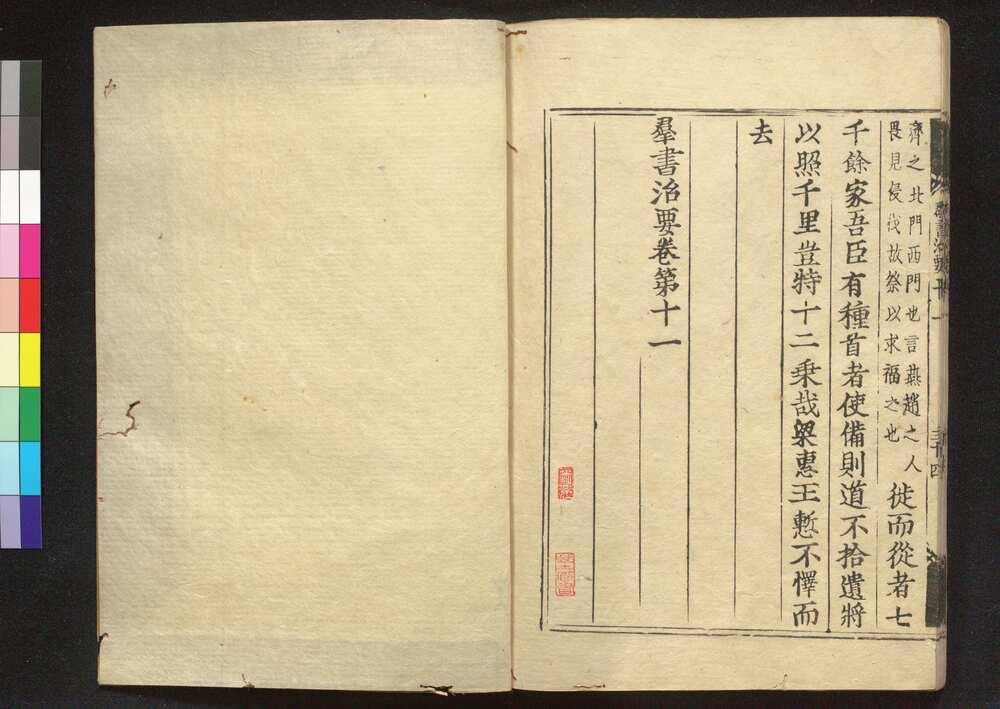 齊之北門西門也言燕趙之人
畏見侵伐故祭以求福之也
徙而從者七
千餘家吾臣有種首者使備則道不拾遺將
以照千里豈特十二乗哉梁惠王慙不懌而
去
羣書治要卷第十一